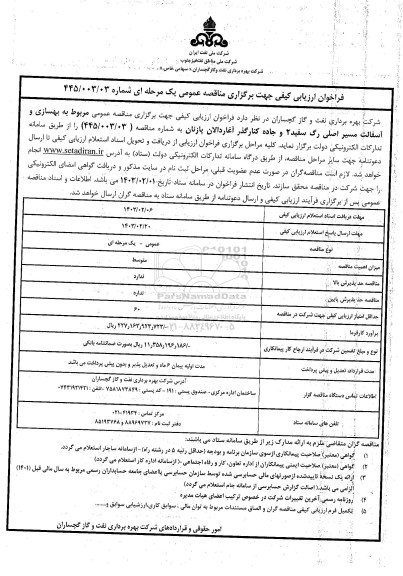 شرکت ملی نفت ایران
شرکت ملی مناطق نفتخیز جنوب
شرکت بهره برداری نفت و گاز گچساران «سهامی خاص»
فراخوان ارزیابی کیفی جهت برگزاری مناقصه عمومی یک مرحله ای شماره ۴۴۵/۰۰۳/۰۳
شرکت بهره برداری نفت و گاز گچساران در نظر دارد فراخوان ارزیابی کیفی جهت برگزاری مناقصه عمومی مربوط به بهسازی و
آسفالت مسیر اصلی رگ سفید۲ و جاده کنارگذر آغاردالان یازنان به شماره مناقصه (۴۴۵/۰۰۳/۰۳) را از طریق سامانه
تدارکات الکترونیکی دولت برگزار نماید. کلیه مراحل برگزاری فراخوان ارزیابی از دریافت و تحویل اسناد استعلام ارزیابی کیفی تا ارسال
دعوتنامه جهت سایر مراحل مناقصه، از طریق درگاه سامانه تدارکات الکترونیکی دولت (ستاد) به آدرس www.setadiran.ir انجام
خواهد شد. لازم است مناقصه‌گران در صورت عدم عضویت قبلی، مراحل ثبت نام در سایت مذکور و دریافت گواهی امضای الکترونیکی
را جهت شرکت در مناقصه محقق سازند. تاریخ انتشار فراخوان در سامانه ستاد تاریخ ۱۴۰۳/۰۲/۰۱ می باشد. اطلاعات و اسناد مناقصه
عمومی پس از برگزاری فرآیند ارزیابی کیفی و ارسال دعوتنامه از طریق سامانه ستاد به مناقصه گران ارسال خواهد شد.
مهلت دریافت اسناد استعلام ارزیابی کیفی ۱۴۰۳/۰۲/۰۶
مهلت ارسال پاسخ استعلام ارزیابی کیفی ۱۴۰۳/۰۲/۲۰
نوع مناقصه عمومی - یک مرحله ای
میزان اهمیت مناقصه متوسط
مناقصه حد پذیرش بالا ندارد
مناقصه حد پذیرش پایین ندارد
حداقل امتیاز ارزیابی کیفی جهت شرکت در مناقصه ۶۰
برآورد کارفرما ۲۲۷,۱۶۳,۹۲۳,۷۲۳/- ریال
نوع و مبلغ تضمین شرکت در فرایند ارجاع کار پیمانکاری ۱۱,۳۵۸,۱۹۶,۱۸۶/- ریال بصورت ضمانتنامه بانکی
مدت قرارداد، تعدیل و پیش پرداخت مدت اولیه پیمان ۶ ماه و تعدیل پذیر و بدون پیش پرداخت می باشد
اطلاعات تماس دستگاه مناقصه گزار آدرس شرکت بهره برداری نفت و گاز گچساران
ساختمان اداره مرکزی- صندوق پستی ۱۹۱- کد پستی ۷۵۸۱۸۷۳۸۴۹ -تلفن: ۰۷۴۳۱۹۲۱۴۳۱
اطلاعات تماس سامانه ستاد مرکز تماس ۴۱۹۳۴-۰۲۱
دفتر ثبت نام: ۸۸۹۶۹۷۳۷ و ۸۵۱۹۳۷۶۸
مناقصه گران متقاضی ملزم به ارائه مدارک زیر از طریق سامانه ستاد می باشند:
۱) گواهی (معتبر) صلاحیت پیمانکاری ازسوی سازمان برنامه و بودجه (حداقل رتبه ۵ در رشته راه) -ازسامانه ساجار استعلام می گردد.
۲) گواهی (معتبر) صلاحیت ایمنی پیمانکاران از اداره تعاون، کار و رفاه اجتماعی -(ازسامانه اداره کار استعلام می گردد)
۳) ارائه یک نسخهٔ تاییدشده ازصورتهای مالی حسابرسی شده توسط سازمان حسابرسی یااعضای جامعه حسابداران رسمی مربوط به سال مالی قبل (۱۴۰۱)
الزامی می باشد.( اصالت گزارش حسابرسی از سامانه جام استعلام می گردد)
۴) روزنامه رسمی،آخرین تغییرات شرکت در خصوص ترکیب اعضای هیات مدیره
۵) تکمیل فرم ارزیابی کیفی مناقصه گران و الصاق مستندات مربوط به توان مالی ، سوابق کاری،ارزشیابی سوابق و......
امور حقوقی و قراردادهای شرکت بهره برداری نفت و گاز گچساران
ParsNamadData
۰۲۱-۸۸۳۴۹۶۷۰-۵